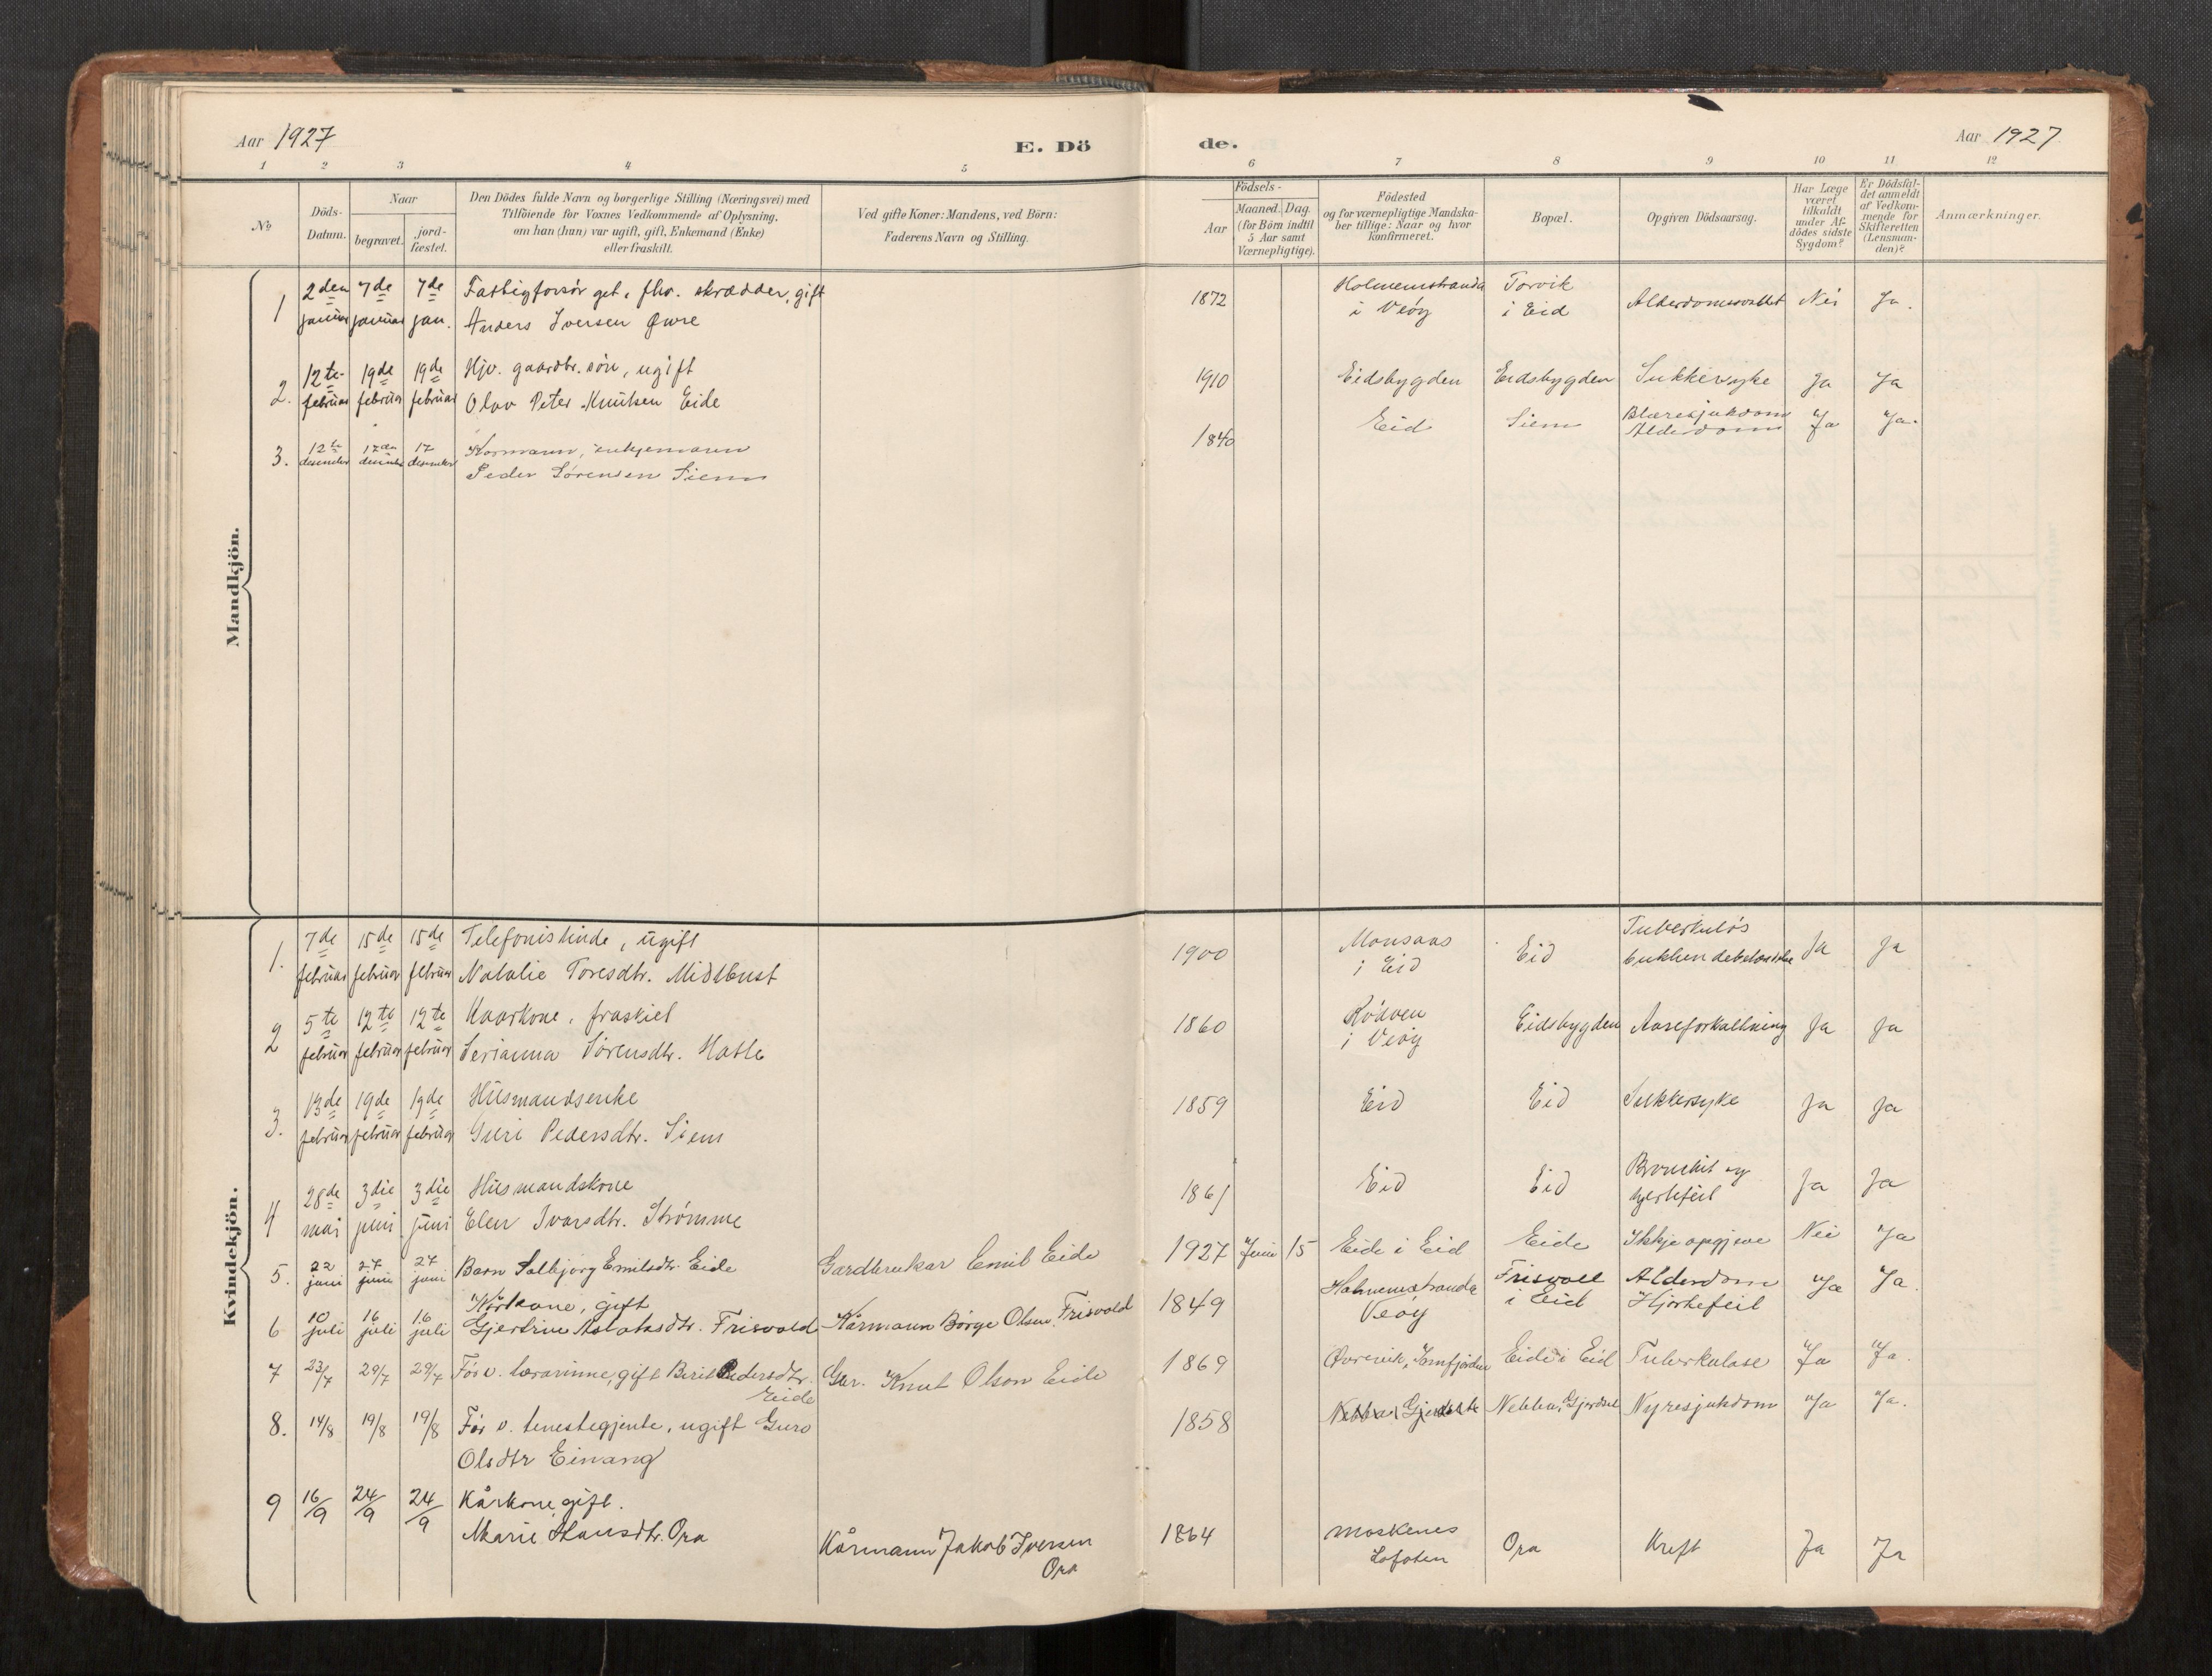 Aar 1927
E. Dö
de.
Aar 1927.
1 2 3 4 5 6 7 8 9 10 11 12
No
Döds-
Datum.
Naar
begravet.
jord-
fæstet.
Den Dödes fulde Navn og borgerlige Stilling (Næringsvei) med
Tilföiende for Voxnes Vedkommende af Oplysning,
om han (hun) var ugift, gift, Enkemand (Enke)
eller fraskilt.
Ved gifte Koner: Mandens, ved Börn:
Faderens Navn og Stilling.
Födsels-
Aar
Maaned. Dag.
(for Börn indtil
5 Aar samt
Værnepligtige).
Födested
og for værnepligtige Mandska-
ber tillige: Naar og hvor
Konfirmeret.
Bopæl.
Opgiven Dödsaarsag.
Har Læge
været
tilkaldt
under Af-
dödes sidste
Sygdom?
Er Dödsfal-
det anmeldt
af Vedkom-
mende for
Skifteretten
(Lensman-
den)?
Anmærkninger.
Mandkjön.
1 2den januar 7de januar 7de jan. Fattigforsørget, fhv. skrædder, gift 1872 Holmemstranda Torvik Alderdomssvakhet Nei Ja.
Anders Iversen Øvre i Veøy i Eid
2. 12te februar 19de februar 19de februar Hjv. gaardbr. søn, ugift 1910 Eidsbygden Eidsbygden Sukkersyke Ja Ja
Olav Peter Knutsen Eide
3. 12te desember 17de desember 17 desember Kormann, enkjemann 1840 Eid Siem Blæresjukdom Ja Ja.
Peder Sørensen Siem Alderdom
Kvindekjön.
1. 7de februar 15de februar 15de februar Telefonistinde, ugift 1900 Monsaas Eid Tuberkuløs Ja Ja
Natalie Toresdtr. Midtbust i Eid bukhindebetændelse
2 5te februar 12te februar 12te februar Kaarkone, fraskilt 1860 Rødven Eidsbygden Aareforkalkning Ja Ja
Serianna Sørensdtr. Hatle i Veøy
3. 13de februar 19de februar 19de februar Husmandsenke 1859 Eid Eid Sukkersyke Ja Ja
Guri Pedersdtr. Siem
4 28de mai 3die juni 3die juni Husmandskone 1861 Eid Eid Bronchit og Ja Ja
Elen Ivarsdtr. Strømme hjertefeil
5. 22 juni 27 juni 27 juni Barn Solbjørg Emilsdtr. Eide Gardbrukar Emil Eide 1927 Juni 15 Eide i Eid Eide Ikkje opgjeve Nei Ja
6 10 juli 16 juli 16 juli Kårkone, gift 1849 Holmemstranda Frisvoll Alderdom Ja Ja.
Gjertrine Aslaksdtr. Frisvold Kårmann Børge Olsen Frisvold Veøy i Eid Hjertefeil
7 23/7 29/7 29/7 Før v. lærarinne, gift Berit Pedersdtr. Gbr. Knut Olson Eide 1869 Øvrevik, Tomfjorden Eide i Eid Tuberkulose Ja Ja.
Eide
8. 14/8 19/8 19/8 Før v. tenestegjente, ugift Guro 1858 Nebba, Gjerdset Nebba, Gjerdset Nyresjukdom Ja Ja.
Olsdtr Einang
9 16/9 24/9 24/9 Kårkone, gift.
Marie Hansdtr. Ora Kårmann Jakob Iversen 1864 Moskenes Ora Kreft Ja Ja
Ora Lofoten